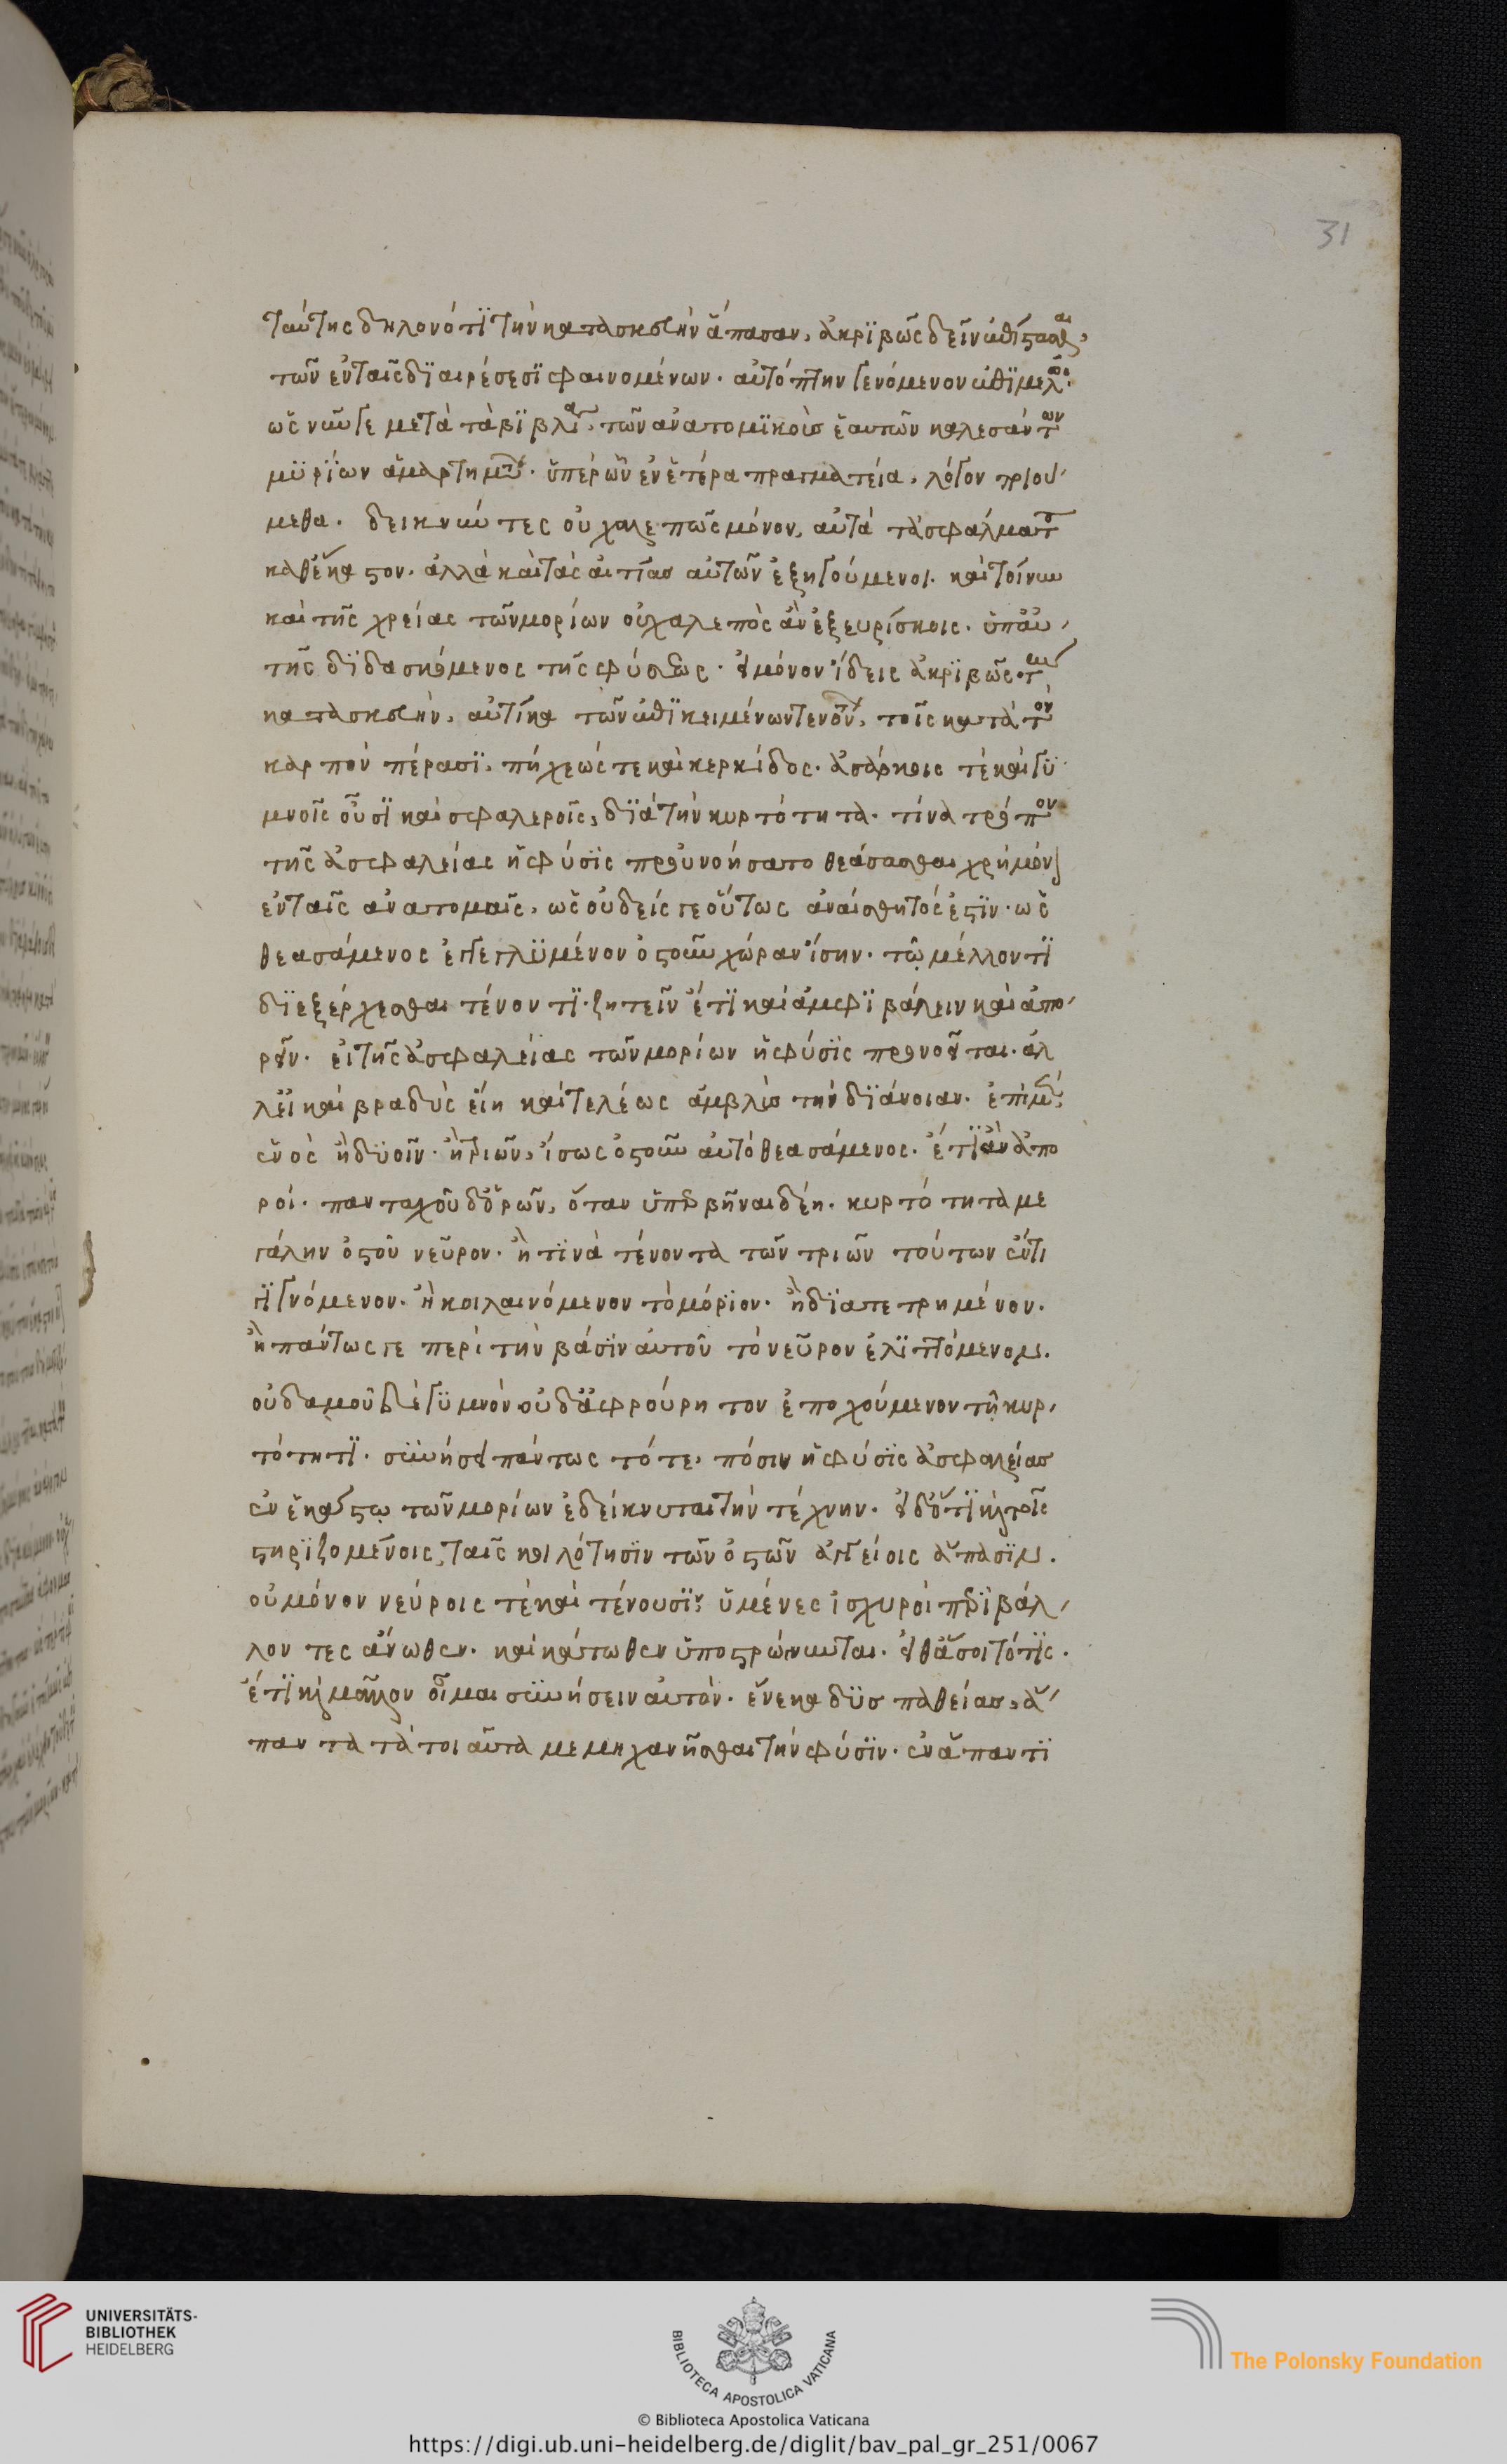 31
ταύτης δηλονότϊ τὴν κατασκευὴν ἅπασαν, ἀκρϊβῶς δεῖν ἐπίστασθαι,
τῶν ἐν ταῖς δϊαιρέσεσϊ φαινομένων. αὐτόπτην γενόμενον ἐπϊμελῶς.
ὡς νῦν γε μετὰ τὰ βϊβλία, τῶν ἀνατομϊκοὺς ἑαυτῶν καλεσάντων
μϋρϊων ἁμαρτημάτων. ὑπὲρ ὧν ἐν ἑτέρα πραγματεία, λόγον ποιού-
μεθα. δεικνύντες οὐ χαλεπῶς μόνον, αὐτὰ τὰ σφάλματα
καθ' ἕκαστον. ἀλλὰ καὶ τὰς αἰτίας αὐτῶν ἐξηγούμενοι. καὶ τοίνυν
καὶ τῆς χρείας τῶν μορίων οὐ χαλεπὸς ἂν ἐξευρίσκοις. ὑπ' αὐ-
τῆς δϊδασκόμενος τῆς φύσεως. εἰ μόνον ἴδεις ἀκρϊβῶς τὴν
κατασκευήν, αὐτίκα τῶν ἐπϊκειμένων τενόντων, τοῖς κατὰ τὸν
καρπὸν πέρασϊ, πήχεώς τε καὶ κερκίδος. ἀσάρκοις τὲ καὶ γϋ
μνοῖς οὖσϊ καὶ σφαλεροῖς, δϊὰ τὴν κυρτότητα. τίνα τρόπον
τῆς ἀσφαλείας ἡ φύσϊς προὐνοήσατο θεάσασθαι χρὴ μόνον
ἐν ταῖς ἀνατομαῖς, ὡς οὐδείς γε οὕτως ἀναίσθητός ἐστϊν. ὡς
θεασάμενος ἐγγεγλϋμένον ὀστοῦν χώραν ἴσην. τῷ μέλλοντϊ
δϊεξέρχεσθαι τένοντϊ. ζητεῖν ἔτϊ καὶ ἀμφϊβάλειν καὶ ἀπο-
ρεῖν. εἰ τῆς ἀσφαλείας τῶν μορίων ἡ φύσϊς προνοεῖται. ἀλ
λ' εἰ καὶ βραδὺς εἴη καὶ τελέως ἀμβλὺς τὴν δϊάνοιαν. ἐπὶ μὲν
ἑνὸς ἢ δϋοῖν. ἢ τριῶν, ἴσως ὀστοῦν αὐτὸ θεασάμενος. ἔτϊ ἂν ἀπο
ροῖ. πανταχοῦ δ' ὁρῶν, ὅταν ὑπερβῆναι δέη. κυρτότητα με
γάλην ὀστοῦ νεῦρον. ἤ τϊνα τένοντα τῶν τριῶν τούτων ἕν τι
γϊγνόμενον. ἢ κοιλαινόμενον τὸ μόρϊον. ἢ δϊατετρημένον.
ἢ πάντως γε περὶ τὴν βάσϊν αὐτοῦ τὸ νεῦρον ἑλϊττόμενον.
οὐδαμοῦ δὲ γϋμνὸν οὐδ' ἀφρούρητον ἐποχούμενον τῇ κυρ-
τότητϊ. σϋνήσει πάντως τότε, πόσην ἡ φύσϊς ἀσφαλείας
ἐν ἑκάστῳ τῶν μορίων ἐδείκνυται τὴν τέχνην. εἰ δ' ὅτϊ καὶ τοῖς
στηρϊζομένοις, ταῖς κοιλότησϊν τῶν ὀστῶν ἀγγείοις ἅπασϊν.
οὐ μόνον νεύροις τὲ καὶ τένουσϊν ὑμένες ἰσχυροὶ περϊβάλ-
λοντες ἄνωθεν. καὶ κάτωθεν ὑποστρώννυνται. εἰ θεάσοι τότϊς.
ἔτϊ καὶ μᾶλλον οἶμαι σϋνήσειν αὐτόν. ἕνεκα δϋσπαθείας, ἅ-
παντα τὰ τοιαῦτα μεμηχανῆσθαι τὴν φύσϊν. ἐν ἅπαντϊ
UNIVERSITÄTS-
BIBLIOTHEK
HEIDELBERG
BIBLIOTECA APOSTOLICA VATICANA
The Polonsky Foundation
© Biblioteca Apostolica Vaticana
https://digi.ub.uni-heidelberg.de/diglit/bav_pal_gr_251/0067